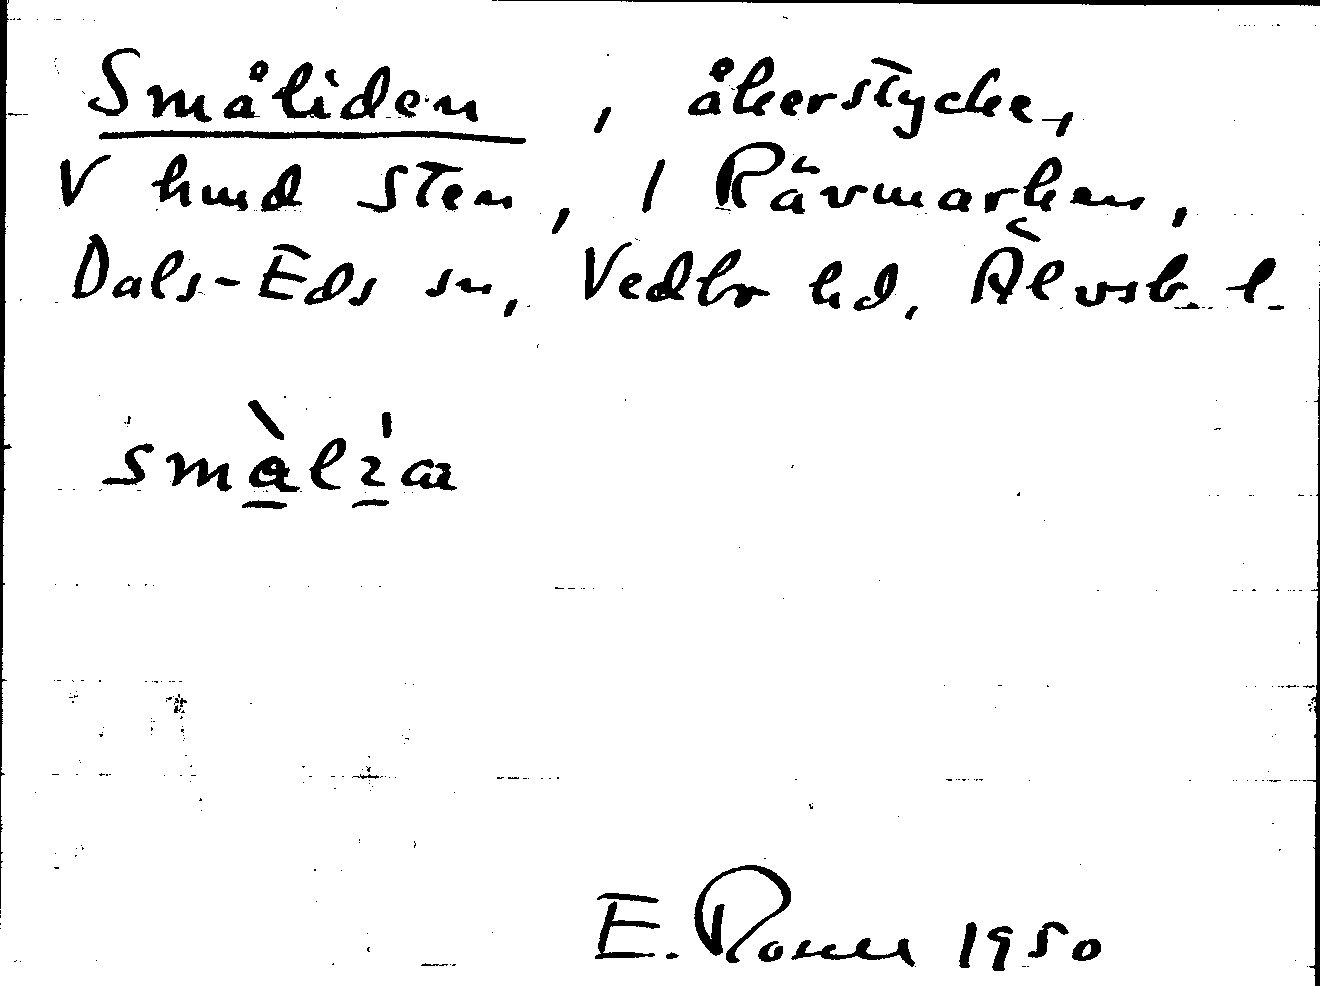 Småliden, åkerstycke,
V hmd Sten, 1 Rävmarken,
Dals-Eds sn, Vedbo hd, Älvsb. l.
E. Rosell 1950